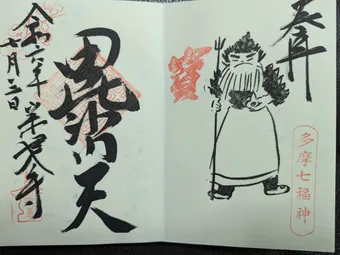 奉拝
多摩七福神
毘沙門天
令和六年
七月三日